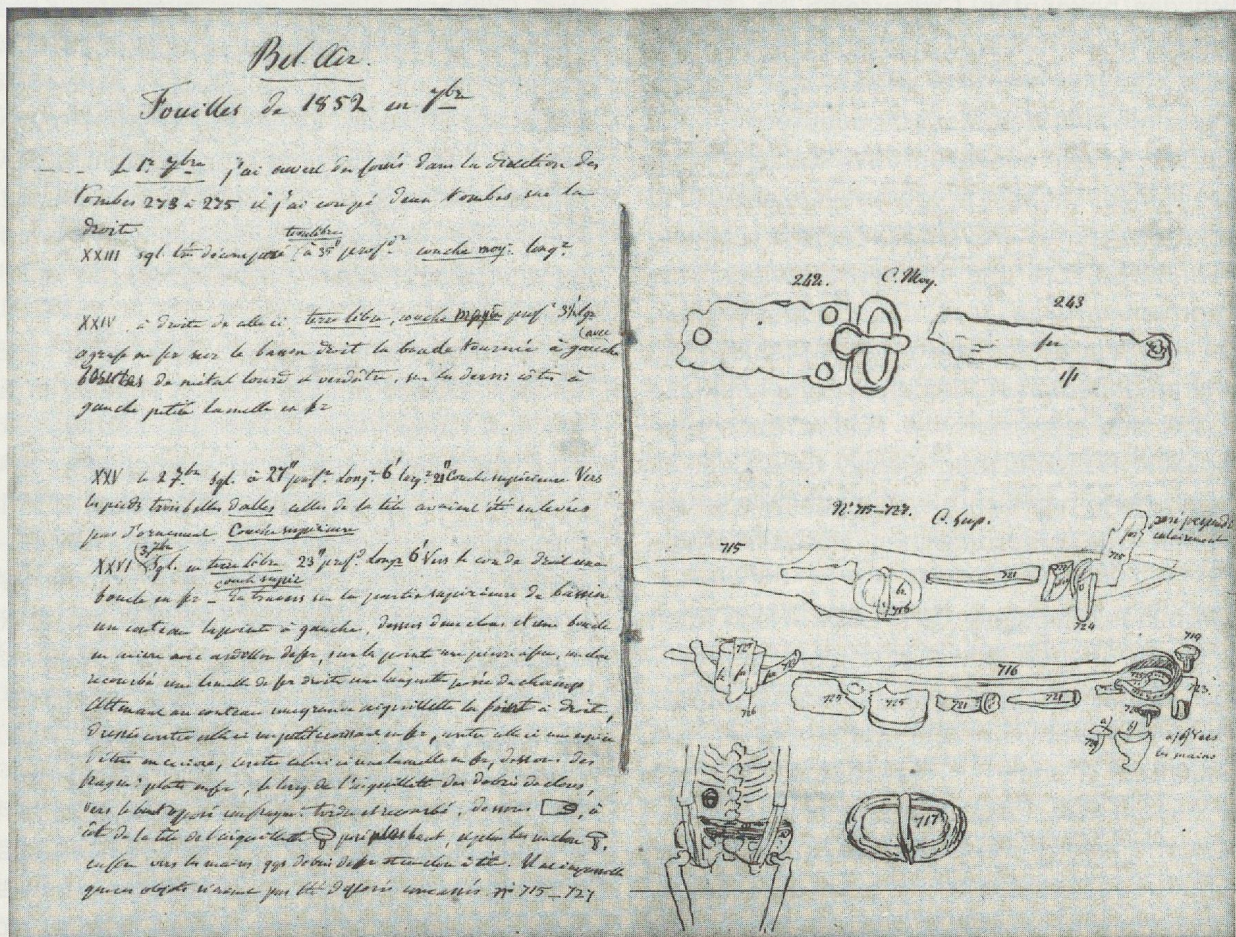 Bel Air.
Fouilles de 1852 en 7bre
Le 1r 7bre j'ai ouvert des fossés dans la direction des
tombes 273 à 275 où j'ai coupé deux tombes sur la
droite
XXIII sql. très décomposé terre libre à 35" profdr couche moy. longr
XXIV à droite de celle ci, terre libre, couche prof 3½
agrafe en fer sur le bassin droit la boucle tournée à gauche (avec
de métal lourd et verdâtre, sur les dern. côtes à
gauche petite lamelle en fer
XXV le 2 7bre sql. à 27" profr Longr 6' largr 21" Couche supérieure Vers
les pieds trois belles dalles celles de la tête avaient été enlevées
pas d'ornement Couche supérieure
XXVI 3 7bre Sql. en terre libre 23" profr Longr 6' Vers le coude droit une
couche supre
boucle en fer – En travers sur la partie supérieure du bassin
un couteau la pointe à gauche, dessus deux clous et une boucle
en cuivre avec ardillon de fer, sur la pointe une pierre à feu, un clou
recourbé une lamelle de fer droite une languette posée de champs
Attenant au couteau une grande aiguillette la pointe à droite,
contre celle ci un petit croissant en fer, contre celle ci une espèce
d'étui en cuivre, contre celui ci une lamelle en fer, dessous des
fragm: plats en fer, le long de l'aiguillette des débris de clous,
vers le bout opposé un fragm. tordu et recourbé, dessous , à
côté de la tête de l'aiguillette posé plus haut,
enfin vers les mains qqs débris de fer et un clou à tête. Il
que ces objets n'aient pas été déposés concassés. No 715–727
242. C. Moy.
243
fer
1/1
No 715–727. C. Sup.
posé perpendi
culairement
715
fer
721
724
716
719
723
726
725
725
721
721
vers
les mains
717